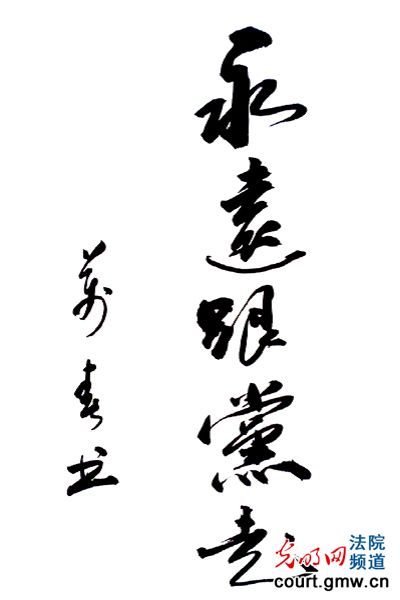 永遠跟黨走
萬春书
光明网 法院频道
court.gmw.cn